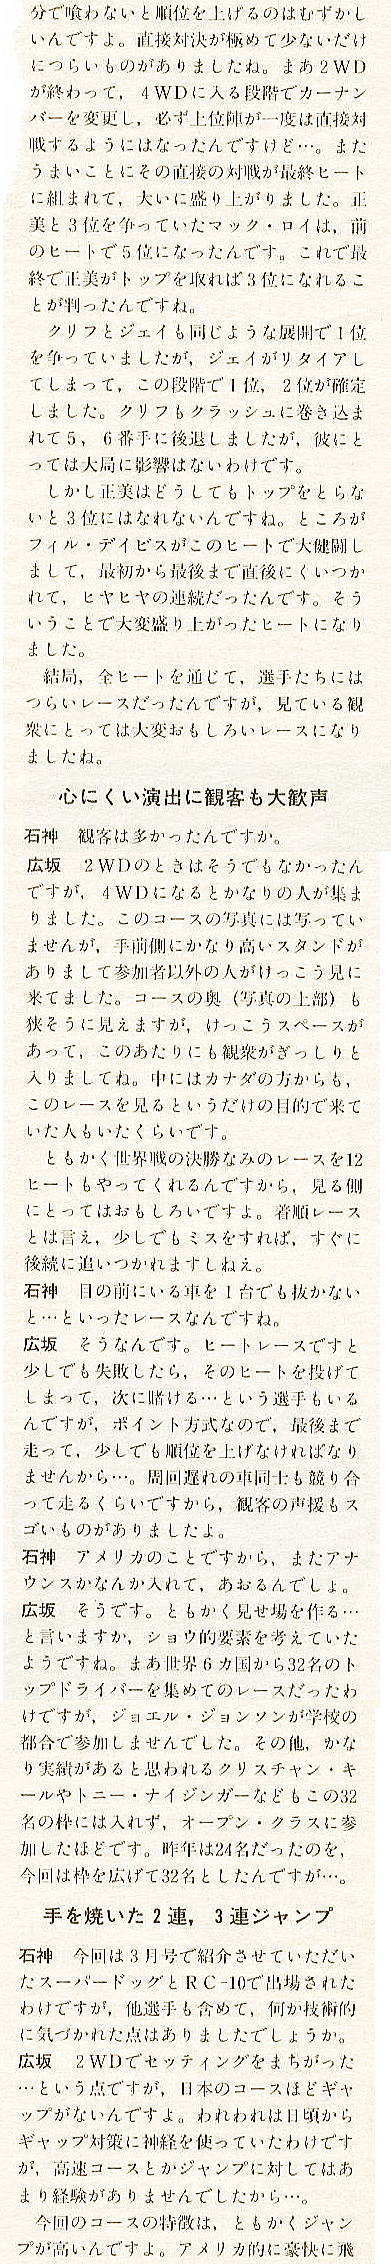 分で喰わないと順位を上げるのはむずかし
いんですよ。直接対決が極めて少ないだけ
につらいものがありましたね。まあ2WD
が終わって，4WDに入る段階でカーナン
バーを変更し，必ず上位陣が一度は直接対
戦するようにはなったんですけど…。また
うまいことにその直接の対戦が最終ヒート
に組まれて，大いに盛り上がりました。正
美と3位を争っていたマック・ロイは，前
のヒートで5位になったんです。これで最
終で正美がトップを取れば3位になれるこ
とが判ったんですね。
クリフとジェイも同じような展開で1位
を争っていましたが，ジェイがリタイアし
てしまって，この段階で1位，2位が確定
しました。クリフもクラッシュに巻き込ま
れて5，6番手に後退しましたが，彼にと
っては大局に影響はないわけです。
しかし正美はどうしてもトップをとらな
いと3位にはなれないんですね。ところが
フィル・デイビスがこのヒートで大健闘し
まして，最初から最後まで直後にくいつか
れて，ヒヤヒヤの連続だったんです。そう
いうことで大変盛り上がったヒートになり
ました。
結局，全ヒートを通じて，選手たちには
つらいレースだったんですが，見ている観
衆にとっては大変おもしろいレースになり
ましたね。
心にくい演出に観客も大歓声
石神　観客は多かったんですか。
広坂　2WDのときはそうでもなかったん
ですが，4WDになるとかなりの人が集ま
りました。このコースの写真には写ってい
ませんが，手前側にかなり高いスタンドが
ありまして参加者以外の人がけっこう見に
来てました。コースの奥（写真の上部）も
狭そうに見えますが，けっこうスペースが
あって，このあたりにも観衆がぎっしりと
入りましてね。中にはカナダの方からも，
このレースを見るというだけの目的で来て
いた人もいたくらいです。
ともかく世界戦の決勝なみのレースを12
ヒートもやってくれるんですから，見る側
にとってはおもしろいですよ。着順レース
とは言え，少しでもミスをすれば，すぐに
後続に追いつかれますしねえ。
石神　目の前にいる車を1台でも抜かない
と…といったレースなんですね。
広坂　そうなんです。ヒートレースですと
少しでも失敗したら，そのヒートを投げて
しまって，次に賭ける…という選手もいる
んですが，ポイント方式なので，最後まで
走って，少しでも順位を上げなければなり
ませんから…。周回遅れの車同士も競り合
って走るくらいですから，観客の声援もス
ゴいものがありましたよ。
石神　アメリカのことですから，またアナ
ウンスかなんか入れて，あおるんでしょ。
広坂　そうです。ともかく見せ場を作る…
と言いますか，ショウ的要素を考えていた
ようですね。まあ世界6カ国から32名のト
ップドライバーを集めてのレースだったわ
けですが，ジョエル・ジョンソンが学校の
都合で参加しませんでした。その他，かな
り実績があると思われるクリスチャン・キ
ールやトニー・ナイジンガーなどもこの32
名の枠には入れず，オープン・クラスに参
加したほどです。昨年は24名だったのを，
今回は枠を広げて32名としたんですが…。
手を焼いた2連，3連ジャンプ
石神　今回は3月号で紹介させていただい
たスーパードッグとRC-10で出場された
わけですが，他選手も含めて，何か技術的
に気づかれた点はありましたでしょうか。
広坂　2WDでセッティングをまちがった
…という点ですが，日本のコースほどギャ
ップがないんですよ。われわれは日頃から
ギャップ対策に神経を使っていたわけです
が，高速コースとかジャンプに対してはあ
まり経験がありませんでしたから…。
今回のコースの特徴は，ともかくジャン
プが高いんですよ。アメリカ的に豪快に飛